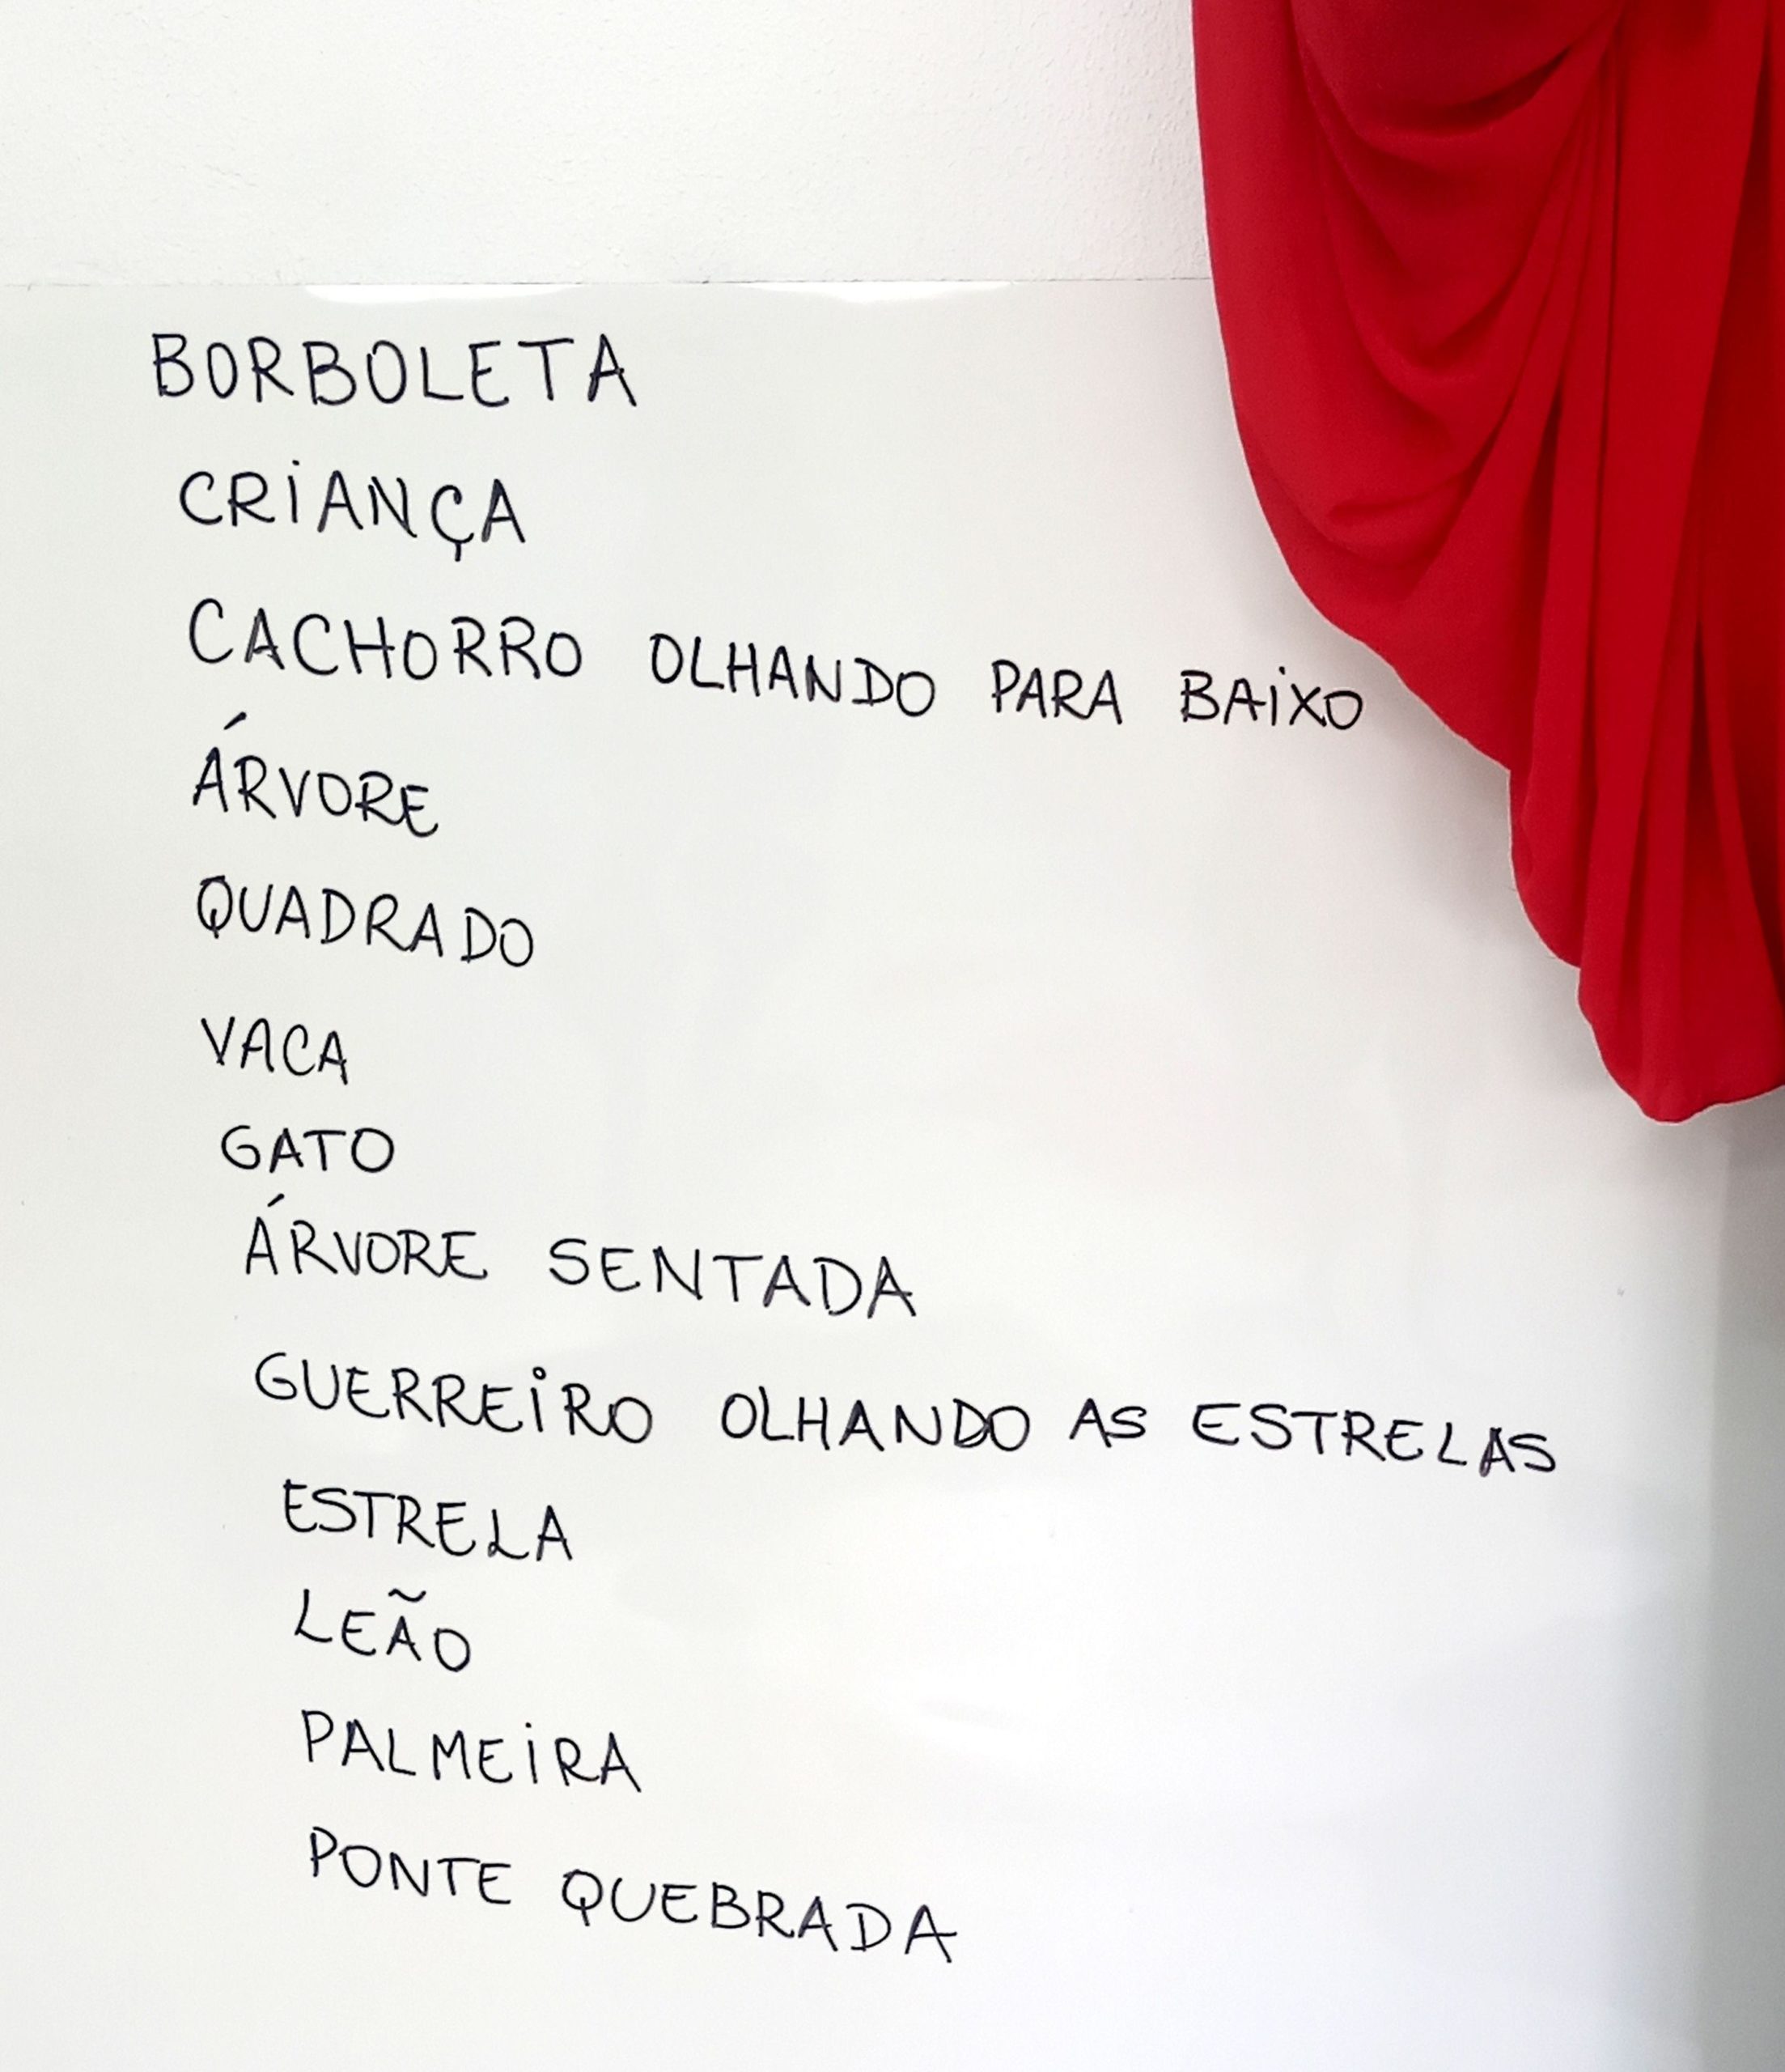 BORBOLETA
CRIANÇA
CACHORRO OLHANDO PARA BAIXO
ÁRVORE
QUADRADO
VACA
GATO
ÁRVORE SENTADA
GUERREIRO OLHANDO AS ESTRELAS
ESTRELA
LEÃO
PALMEIRA
PONTE QUEBRADA